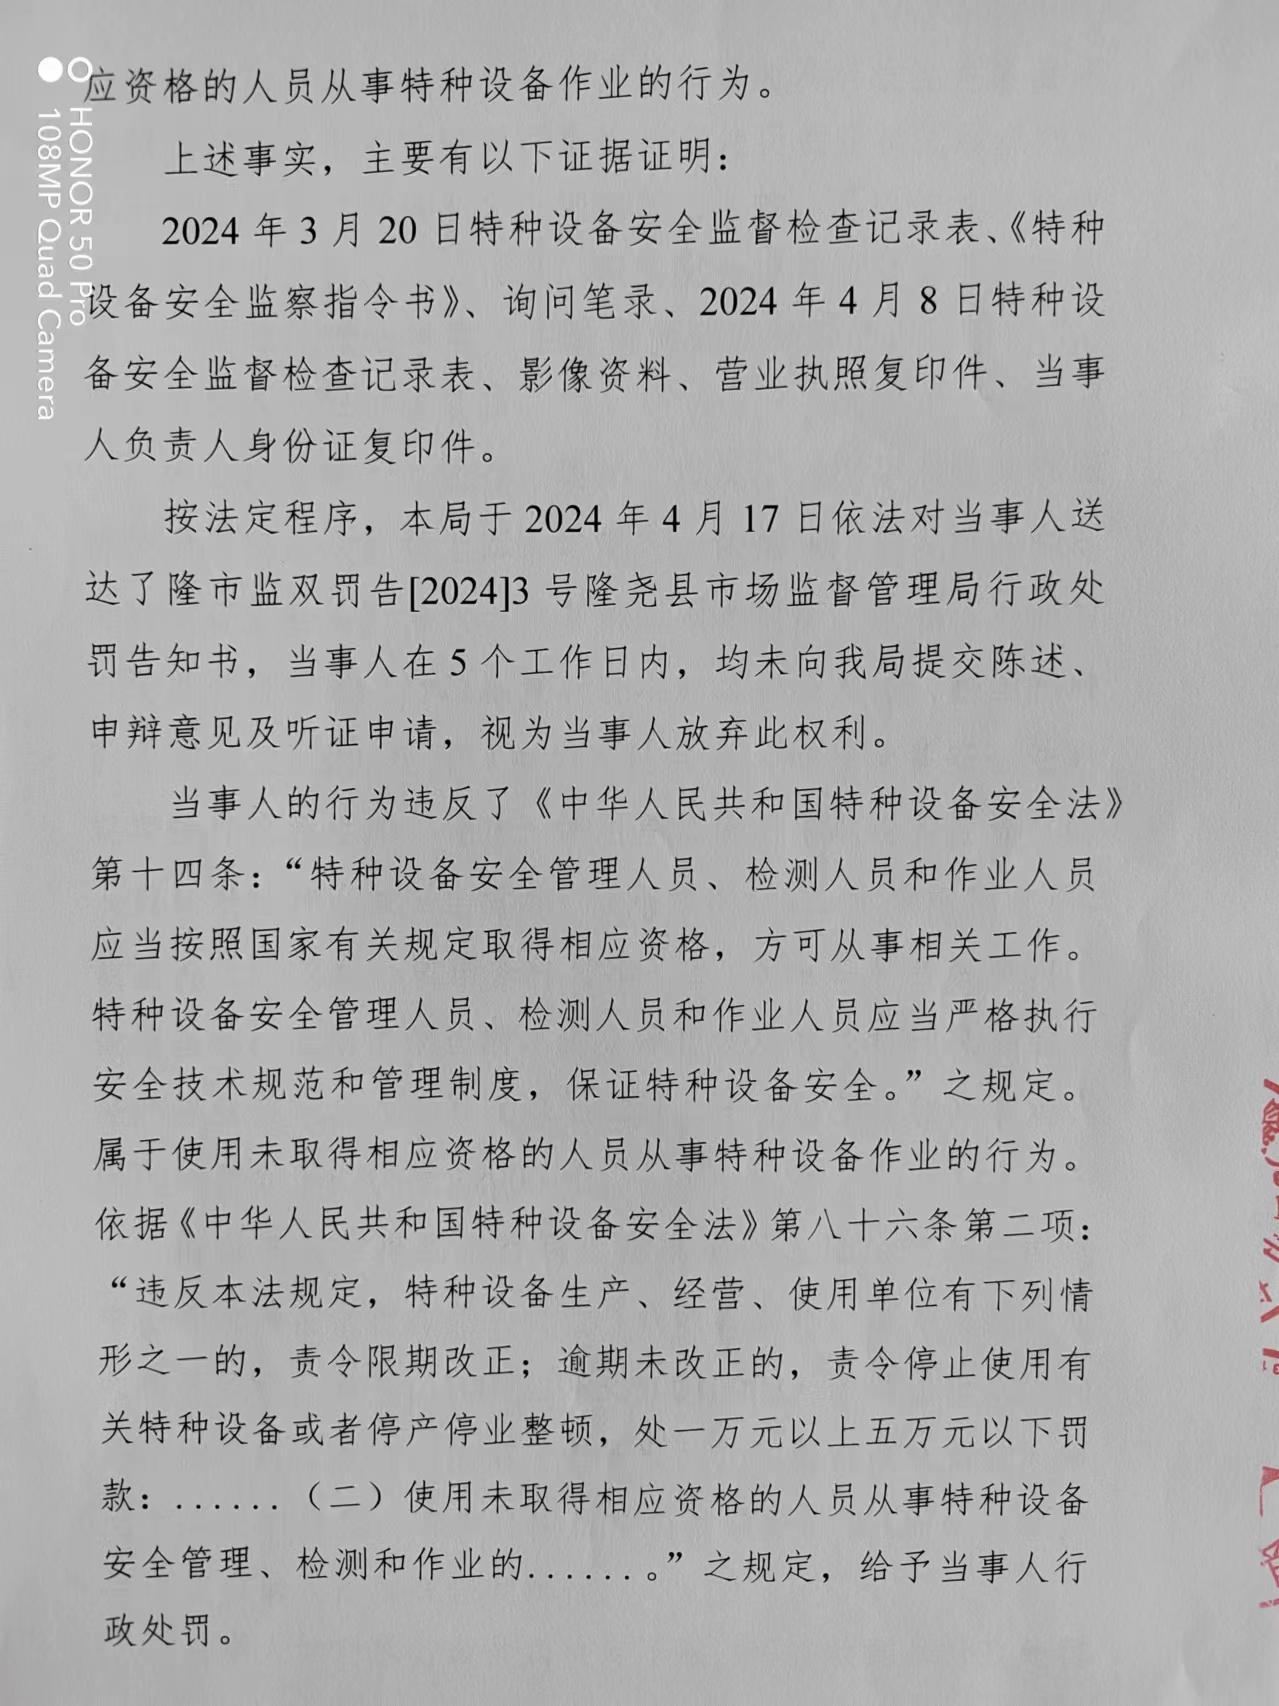 应资格的人员从事特种设备作业的行为。
上述事实，主要有以下证据证明：
2024 年 3 月 20 日特种设备安全监督检查记录表、《特种
设备安全监察指令书》、询问笔录、2024 年 4 月 8 日特种设
备安全监督检查记录表、影像资料、营业执照复印件、当事
人负责人身份证复印件。
按法定程序，本局于 2024 年 4 月 17 日依法对当事人送
达了隆市监双罚告[2024]3 号隆尧县市场监督管理局行政处
罚告知书，当事人在 5 个工作日内，均未向我局提交陈述、
申辩意见及听证申请，视为当事人放弃此权利。
当事人的行为违反了《中华人民共和国特种设备安全法》
第十四条：“特种设备安全管理人员、检测人员和作业人员
应当按照国家有关规定取得相应资格，方可从事相关工作。
特种设备安全管理人员、检测人员和作业人员应当严格执行
安全技术规范和管理制度，保证特种设备安全。”之规定。
属于使用未取得相应资格的人员从事特种设备作业的行为。
依据《中华人民共和国特种设备安全法》第八十六条第二项：
“违反本法规定，特种设备生产、经营、使用单位有下列情
形之一的，责令限期改正；逾期未改正的，责令停止使用有
关特种设备或者停产停业整顿，处一万元以上五万元以下罚
款：......（二）使用未取得相应资格的人员从事特种设备
安全管理、检测和作业的.......。”之规定，给予当事人行
政处罚。
HONOR 50 Pro
108MP Quad Camera